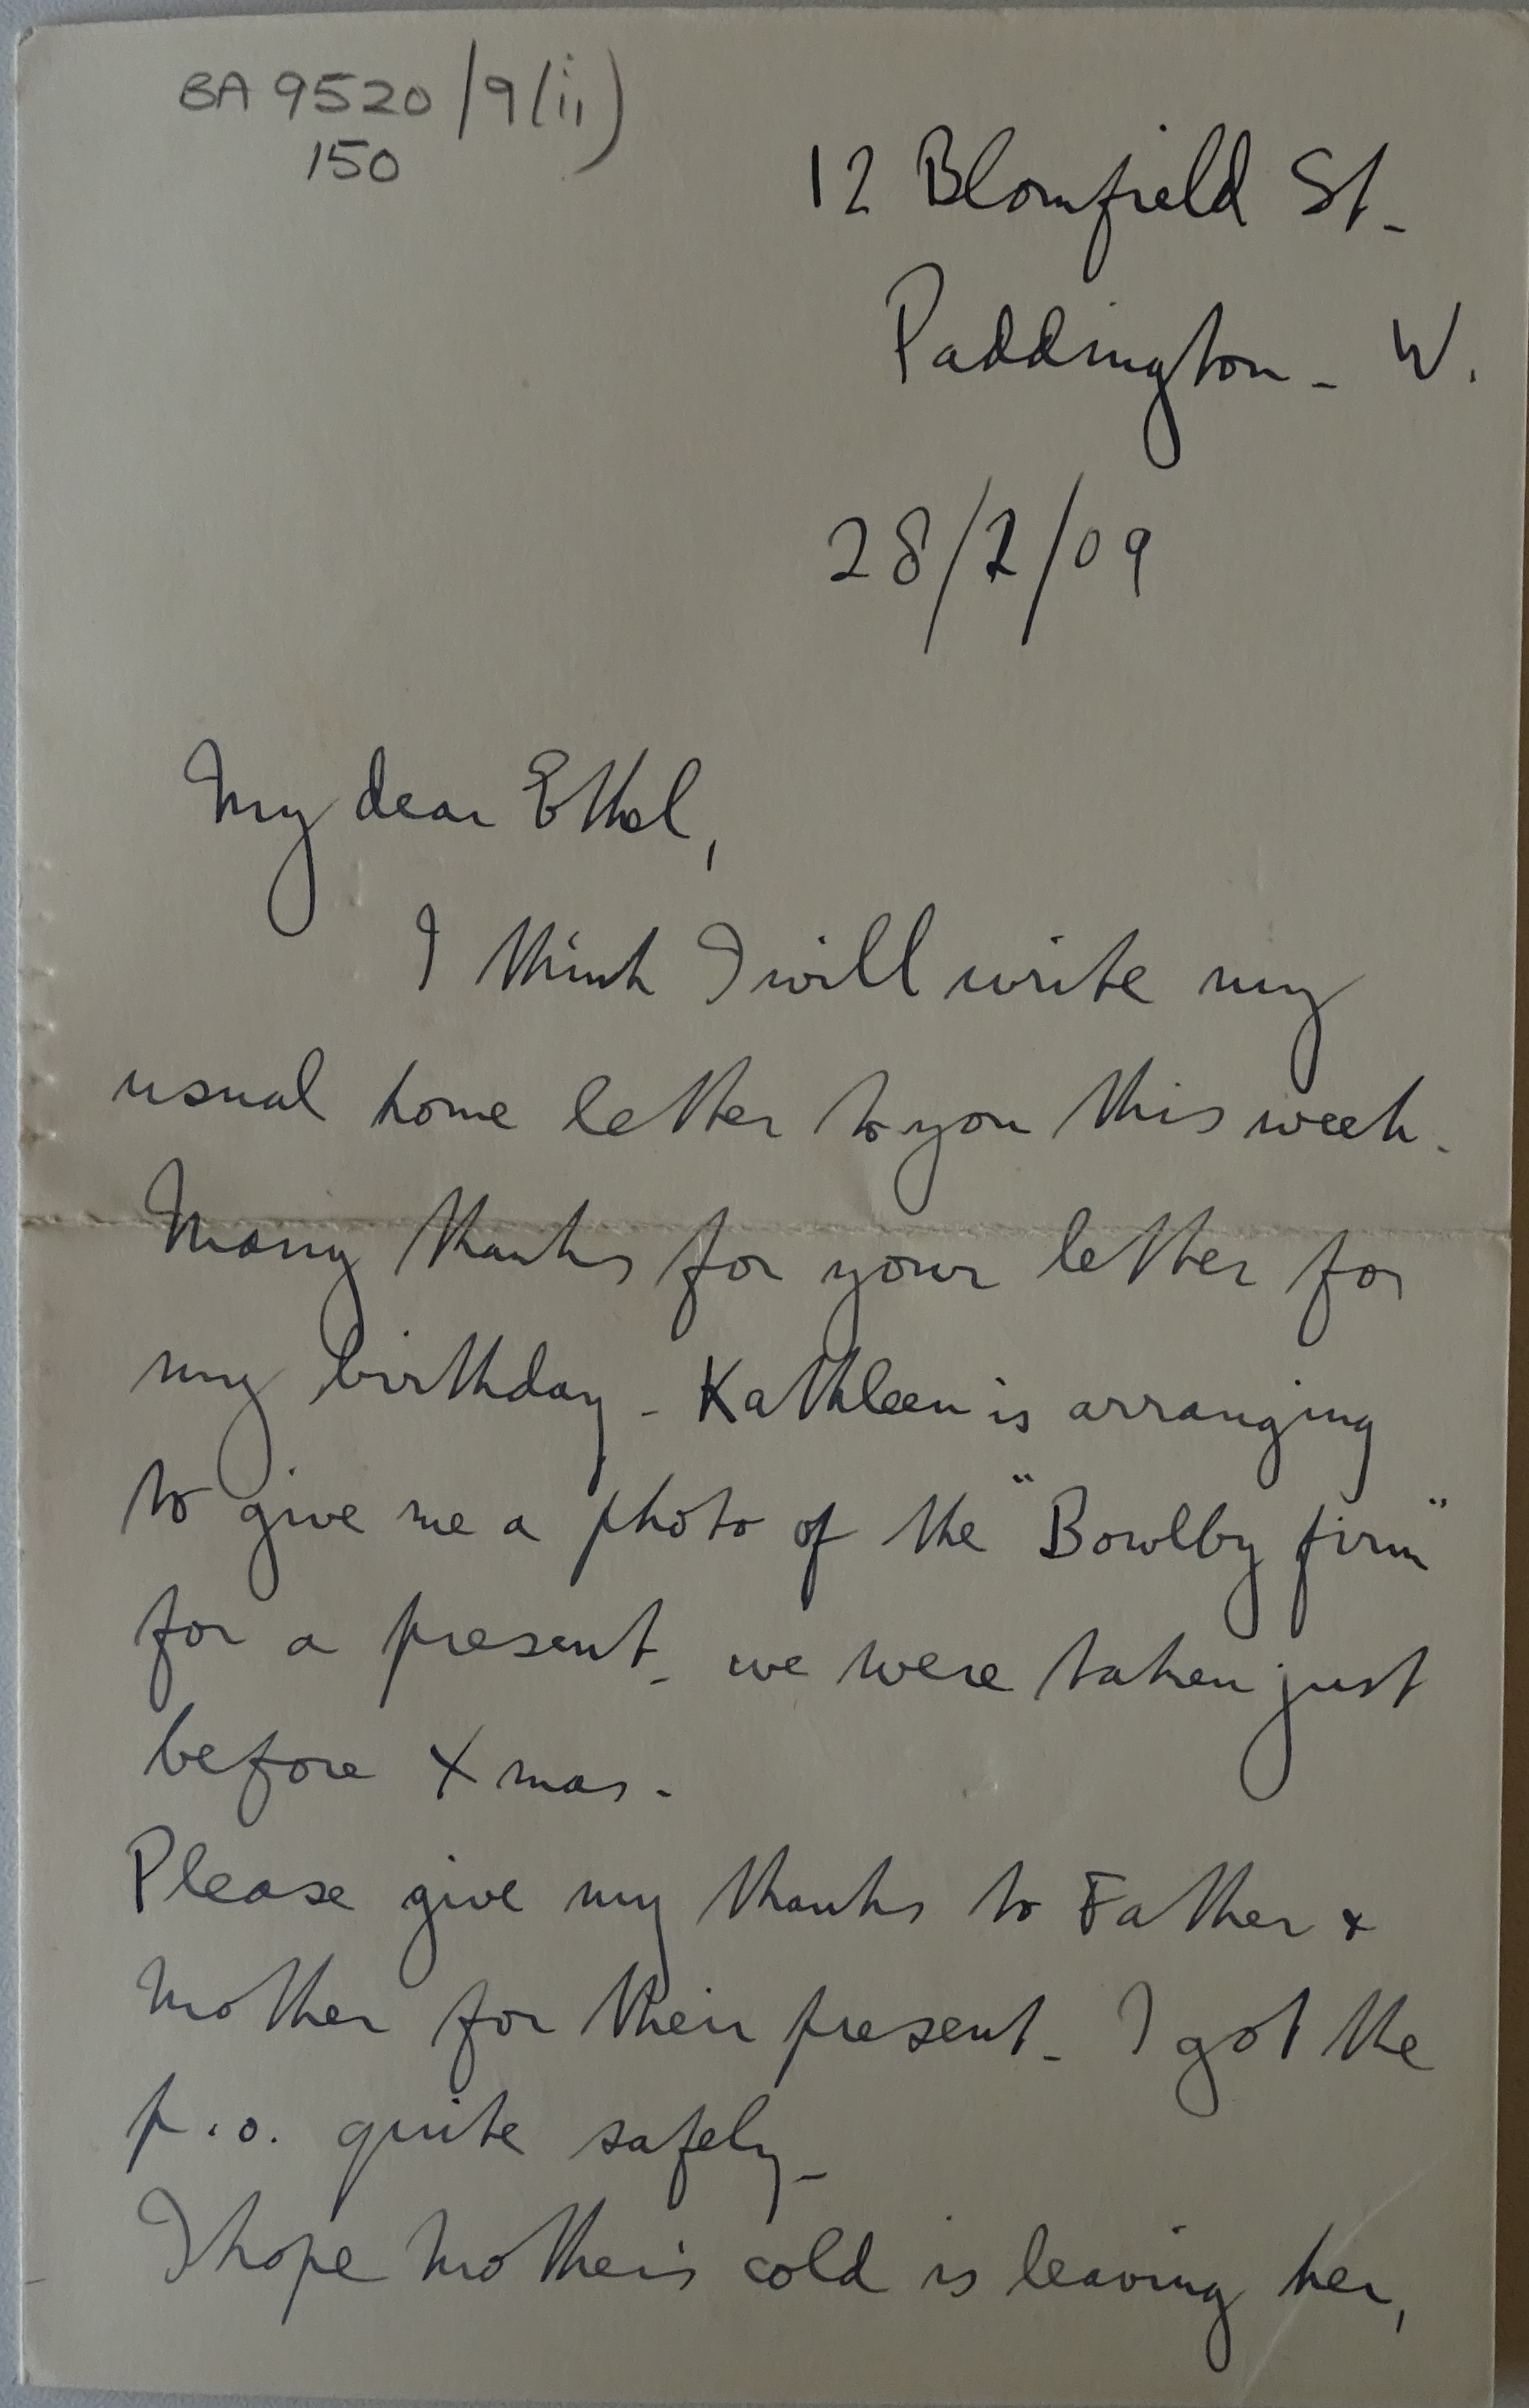 BA 9520/9(ii)
150
12 Blomfield St.
Paddington - W.
28/2/09
My dear Ethel,
I think I will write my
usual home letter to you this week.
Many thanks for your letter for
my birthday - Kathleen is arranging
to give me a photo of the "Bowlby firm"
for a present - we were taken just
before Xmas.
Please give my thanks to Father &
Mother for their present - I got the
p.o. quite safely -
I hope Mother's cold is leaving her,